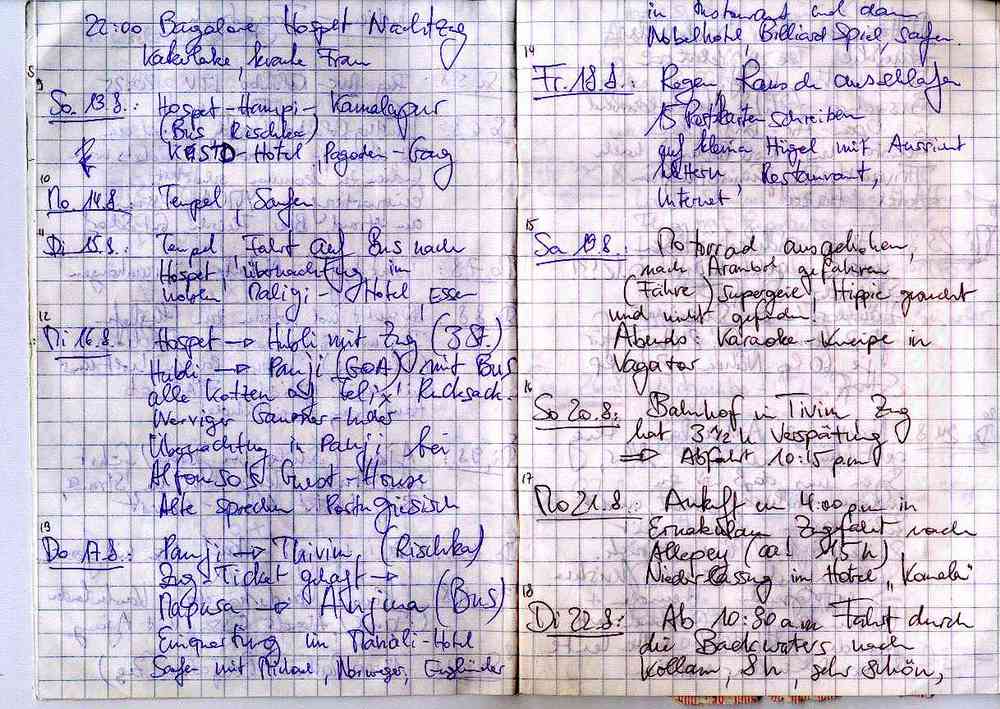 22:00 Bagalore Hospet Nachtzug
Kakerlake, kranke Frau
9
So. 13.8.: Hospet-Hampi-Kamalapur
(Bus Rischka)
KSTD-Hotel, Pagoden-Gang
10
Mo. 14.8.: Tempel, Saufen
11
Di 15.8.: Tempel, Fahrt auf Bus nach
Hospet, Übernachtung im
noblen Maligi-Hotel, Essen
12
Mi 16.8. Hospet → Hubli mit Zug (3 St.)
Hubli → Panji (GOA) mit Bus
alle Kotzen auf Felix' Rucksack.
Nerviger Gangster-Inder
Übernachtung in Panji bei
Alfonso's Guest-House
Alte sprechen Portugiesisch
13
Do 17.8.: Panji → Thivim, (Rischka)
Zug-Ticket gekauft →
Mapusa → Anjuna (Bus)
Einquartierung im Mahali-Hotel
Saufen mit Michael, Norweger, Engländer
in Restaurant und dann
Nobelhotel, Billiard Spiel, saufen.
14
Fr. 18.8.: Regen, Rausch ausschlafen
15 Postkarten schreiben
auf kleinen Hügel mit Aussicht
klettern, Restaurant,
Internet
15
Sa 19.8.: Motorrad ausgeliehen,
nach Arambol gefahren
(Fähre) supergeil, Hippie gesucht
und nicht gefunden!
Abends: Karaoke-Kneipe in
Vagator
16
So 20.8.: Bahnhof in Tivim Zug
hat 3 1/2 h Verspätung
⇒ Abfahrt 10:15 pm
17
Mo 21.8.: Ankuft um 4:00 pm in
Ernakulam Zugfahrt nach
Allepey (ca. 15 h),
Niederlassung im Hotel „Komala"
18
Di 22.8: Ab 10:30 am Fahrt durch
die Backwaters nach
Kollam, 8h, sehr schön,